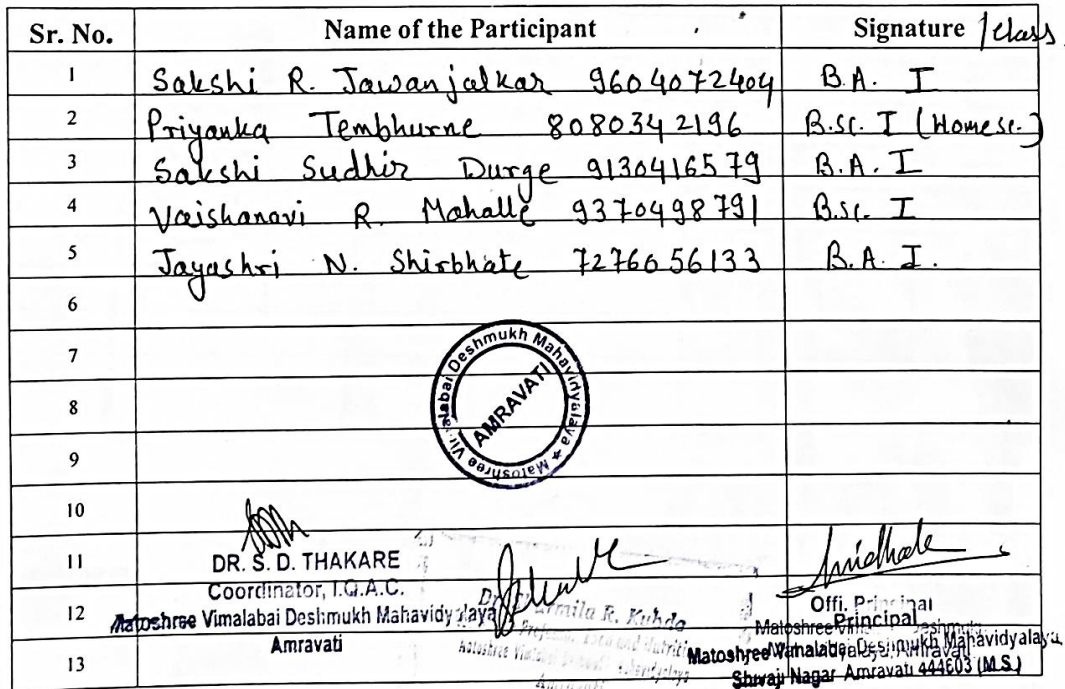 Sr. No. Name of the Participant Signature /class
1 Sakshi R. Jawanjalkar 9604072404 B.A. I
2 Priyanka Tembhurne 8080342196 B.sc. I (Homesc.)
3 Sakshi Sudhir Durge 9130416579 B.A. I
4 Vaishanavi R. Mahalle 9370498791 B.sc. I
5 Jayashri N. Shirbhate 7276056133 B.A I.
6
7
8
9
10
11
12
13
Matoshree Vimalabai Deshmukh Mahavidyalaya ★
AMRAVATI
DR. S. D. THAKARE
Coordinator, I.Q.A.C.
Matoshree Vimalabai Deshmukh Mahavidyalaya
Amravati
R. Kubde
Offi. Principal
Principal
Matoshree Vimalabai Deshmukh Mahavidyalaya,
Shivaji Nagar Amravati 444603 (M.S.)